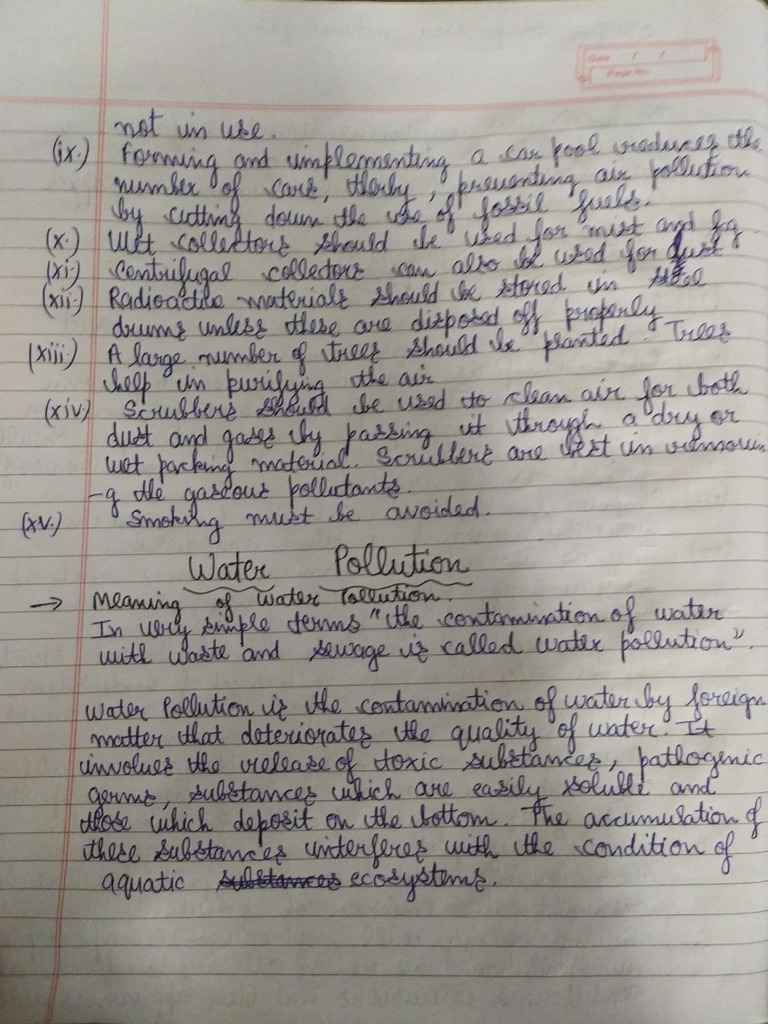 Date / /
Page No.
not in use.
(ix.) Forming and implementing a car pool reduces the
number of cars, therby, preventing air pollution
by cutting down the use of fossil fuels.
(x.) Wet collectors should be used for mist and fog.
(xi.) Centrifugal collectors can also be used for dust
(xii.) Radioactive materials should be stored in steel
drums unless these are disposed off properly
(xiii.) A large number of trees should be planted. Trees
help in purifying the air
(xiv) Scrubbers should be used to clean air for both
dust and gases by passing it through a dry or
wet packing material. Scrubbers are best in removin
-g the gaseous pollutants.
(xv.) Smoking must be avoided.
Water Pollution
→ Meaning of Water Pollution.
In very simple terms "the contamination of water
with waste and sewage is called water pollution".
Water Pollution is the contamination of water by foreign
matter that deteriorates the quality of water. It
involves the release of toxic substances, pathogenic
germs, substances which are easily soluble and
those which deposit on the bottom. The accumulation of
these substances interferes with the condition of
aquatic substances ecosystems.